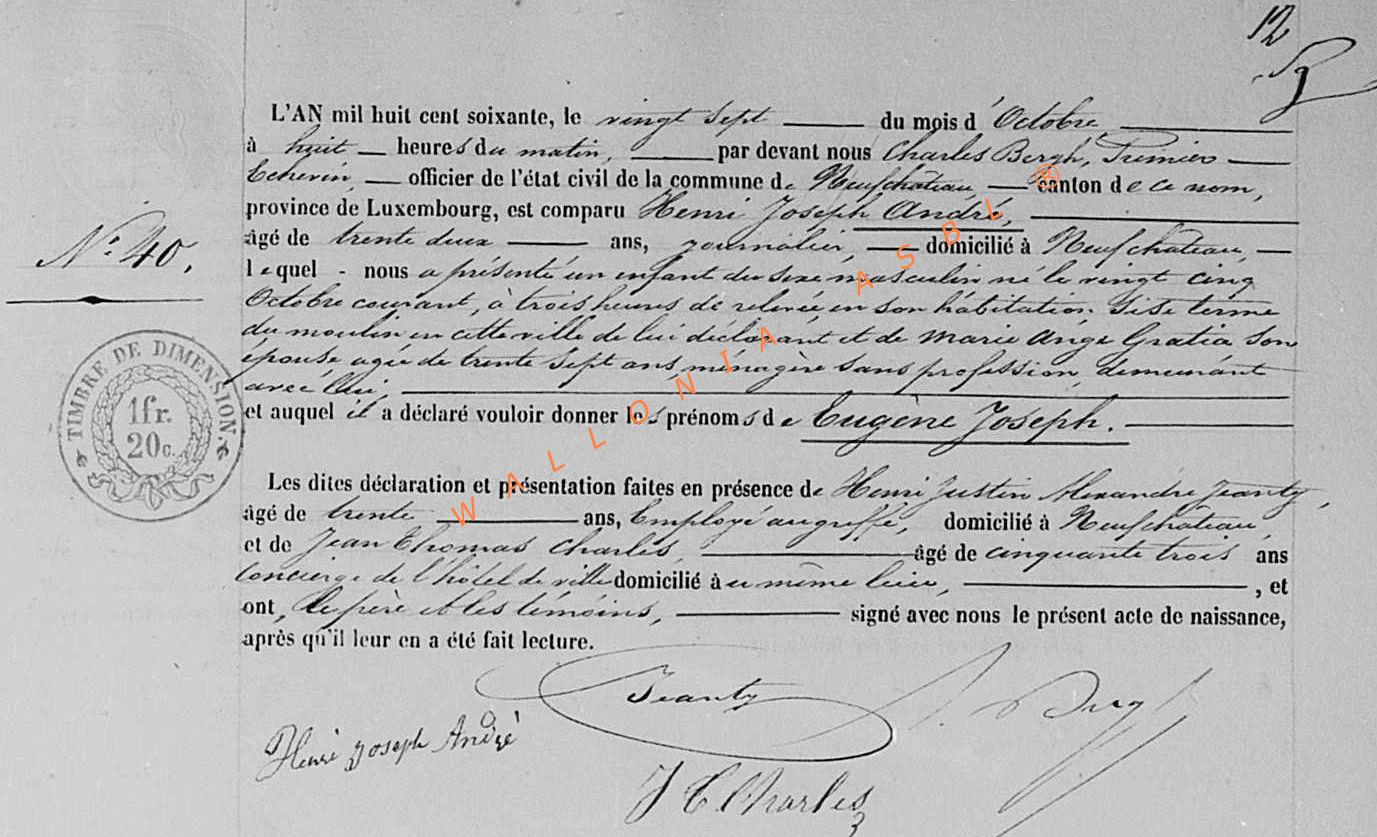 12
L'AN mil huit cent soixante, le vingt sept du mois d'Octobre
à huit heures du matin, par devant nous Charles Bergh, Premier
Echevin, officier de l'état civil de la commune de Neufchâteau canton de ce nom,
province de Luxembourg, est comparu Henri Joseph André,
N.° 40.
âgé de trente deux ans, journalier, domicilié à Neufchateau,
lequel - nous a présenté un enfant du sexe masculin né le vingt cinq
Octobre courant, à trois heures de relevée en son habitation sise terme
du moulin en cette ville de lui déclarant et de Marie Ange Gratia son
épouse agée de trente sept ans, ménagère sans profession, demeurant
avec lui,
et auquel il a déclaré vouloir donner les prénoms de Eugène Joseph.
TIMBRE DE DIMENSION.
1fr.
20c.
Les dites déclaration et présentation faites en présence de Henri Justin Alexandre Jeanty,
âgé de trente ans, Employé au greffe, domicilié à Neufchâteau
et de Jean Thomas Charles, âgé de cinquante trois ans
concierge de l'hôtel de ville domicilié au même lieu, , et
ont, le père et les témoins, signé avec nous le présent acte de naissance,
après qu'il leur en a été fait lecture.
Jeanty
Henri Joseph André
J T Charles
WALLONIA ASBL ®